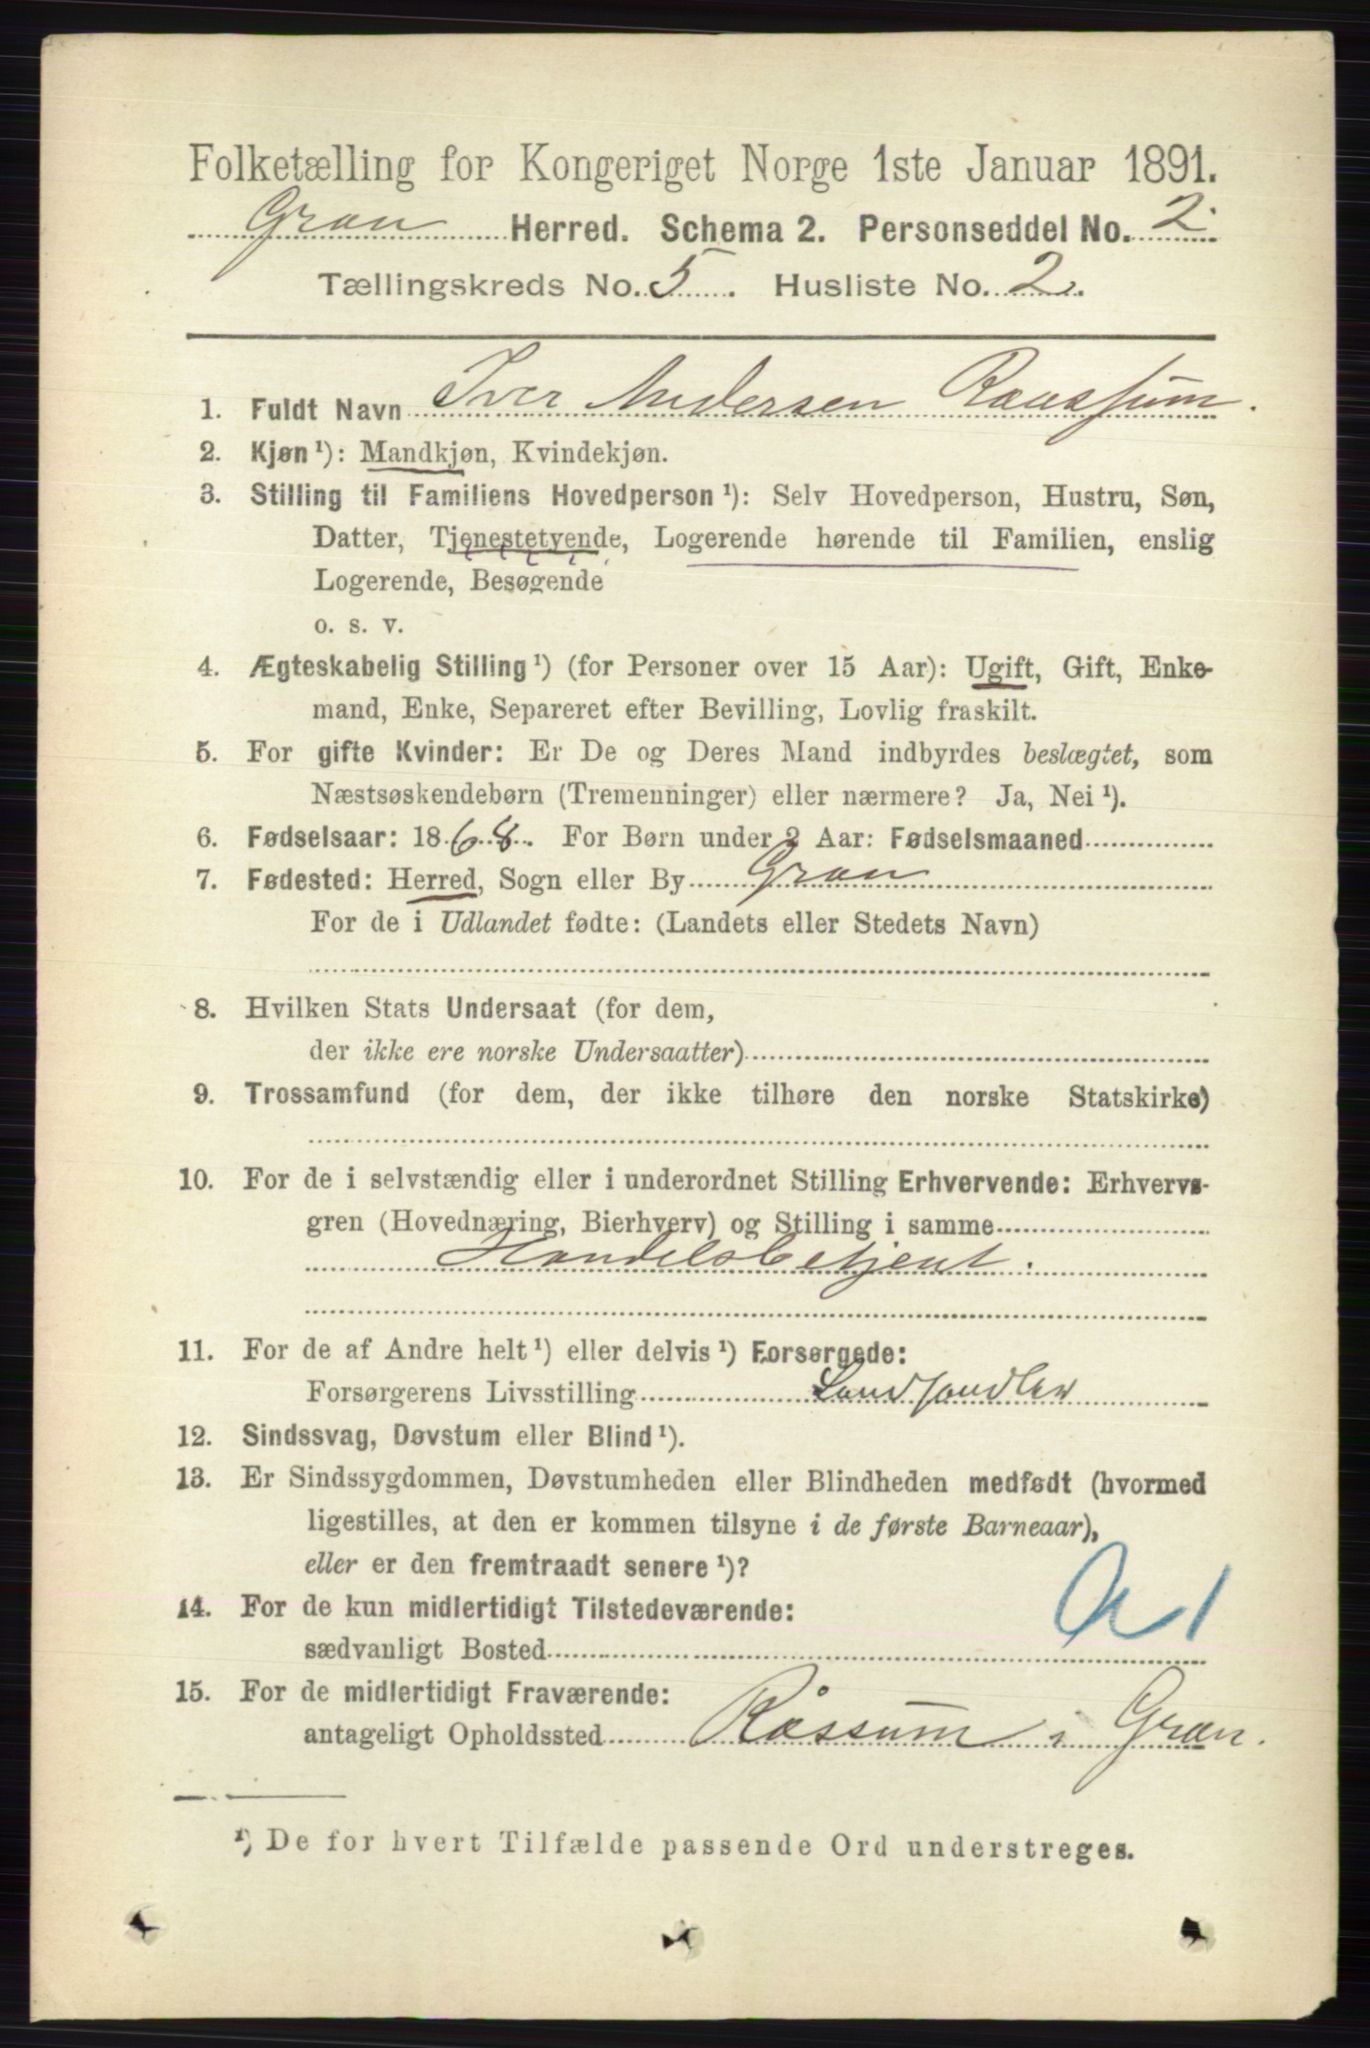 Folketælling for Kongeriget Norge 1ste Januar 1891.
Gran Herred. Schema 2. Personseddel No. 2.
Tællingskreds No. 5. Husliste No. 2.
1. Fuldt Navn Iver Andersen Raassum.
2. Kjøn ¹): Mandkjøn, Kvindekjøn.
3. Stilling til Familiens Hovedperson ¹): Selv Hovedperson, Hustru, Søn,
Datter, Tjenestetyende, Logerende hørende til Familien, enslig
Logerende, Besøgende
o. s. v.
4. Ægteskabelig Stilling ¹) (for Personer over 15 Aar): Ugift, Gift, Enke-
mand, Enke, Separeret efter Bevilling, Lovlig fraskilt.
5. For gifte Kvinder: Er De og Deres Mand indbyrdes beslægtet, som
Næstsøskendebørn (Tremenninger) eller nærmere? Ja, Nei ¹).
6. Fødselsaar: 1868. For Børn under 2 Aar: Fødselsmaaned
7. Fødested: Herred, Sogn eller By Gran
For de i Udlandet fødte: (Landets eller Stedets Navn)
8. Hvilken Stats Undersaat (for dem,
der ikke ere norske Undersaatter)
9. Trossamfund (for dem, der ikke tilhøre den norske Statskirke)
10. For de i selvstændig eller i underordnet Stilling Erhvervende: Erhvervs-
gren (Hovednæring, Bierhverv) og Stilling i samme
Handelsbetjent.
11. For de af Andre helt ¹) eller delvis ¹) Forsørgede:
Forsørgerens Livsstilling Landhandler
12. Sindssvag, Døvstum eller Blind ¹).
13. Er Sindssygdommen, Døvstumheden eller Blindheden medfødt (hvormed
ligestilles, at den er kommen tilsyne i de første Barneaar),
eller er den fremtraadt senere ¹)?
14. For de kun midlertidigt Tilstedeværende:
sædvanligt Bosted
15. For de midlertidigt Fraværende:
antageligt Opholdssted Råssum i Gran.
¹) De for hvert Tilfælde passende Ord understreges.